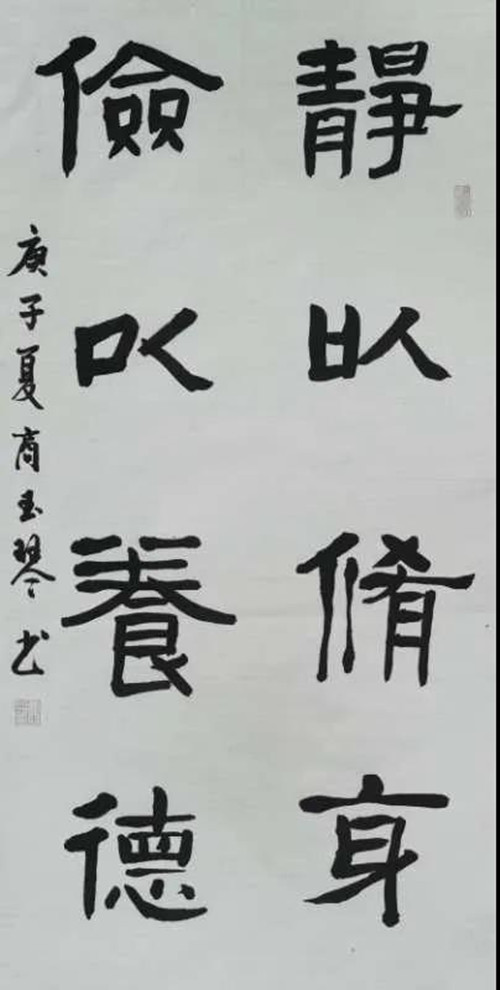 靜以脩身
儉以養德
庚子夏商玉琴书